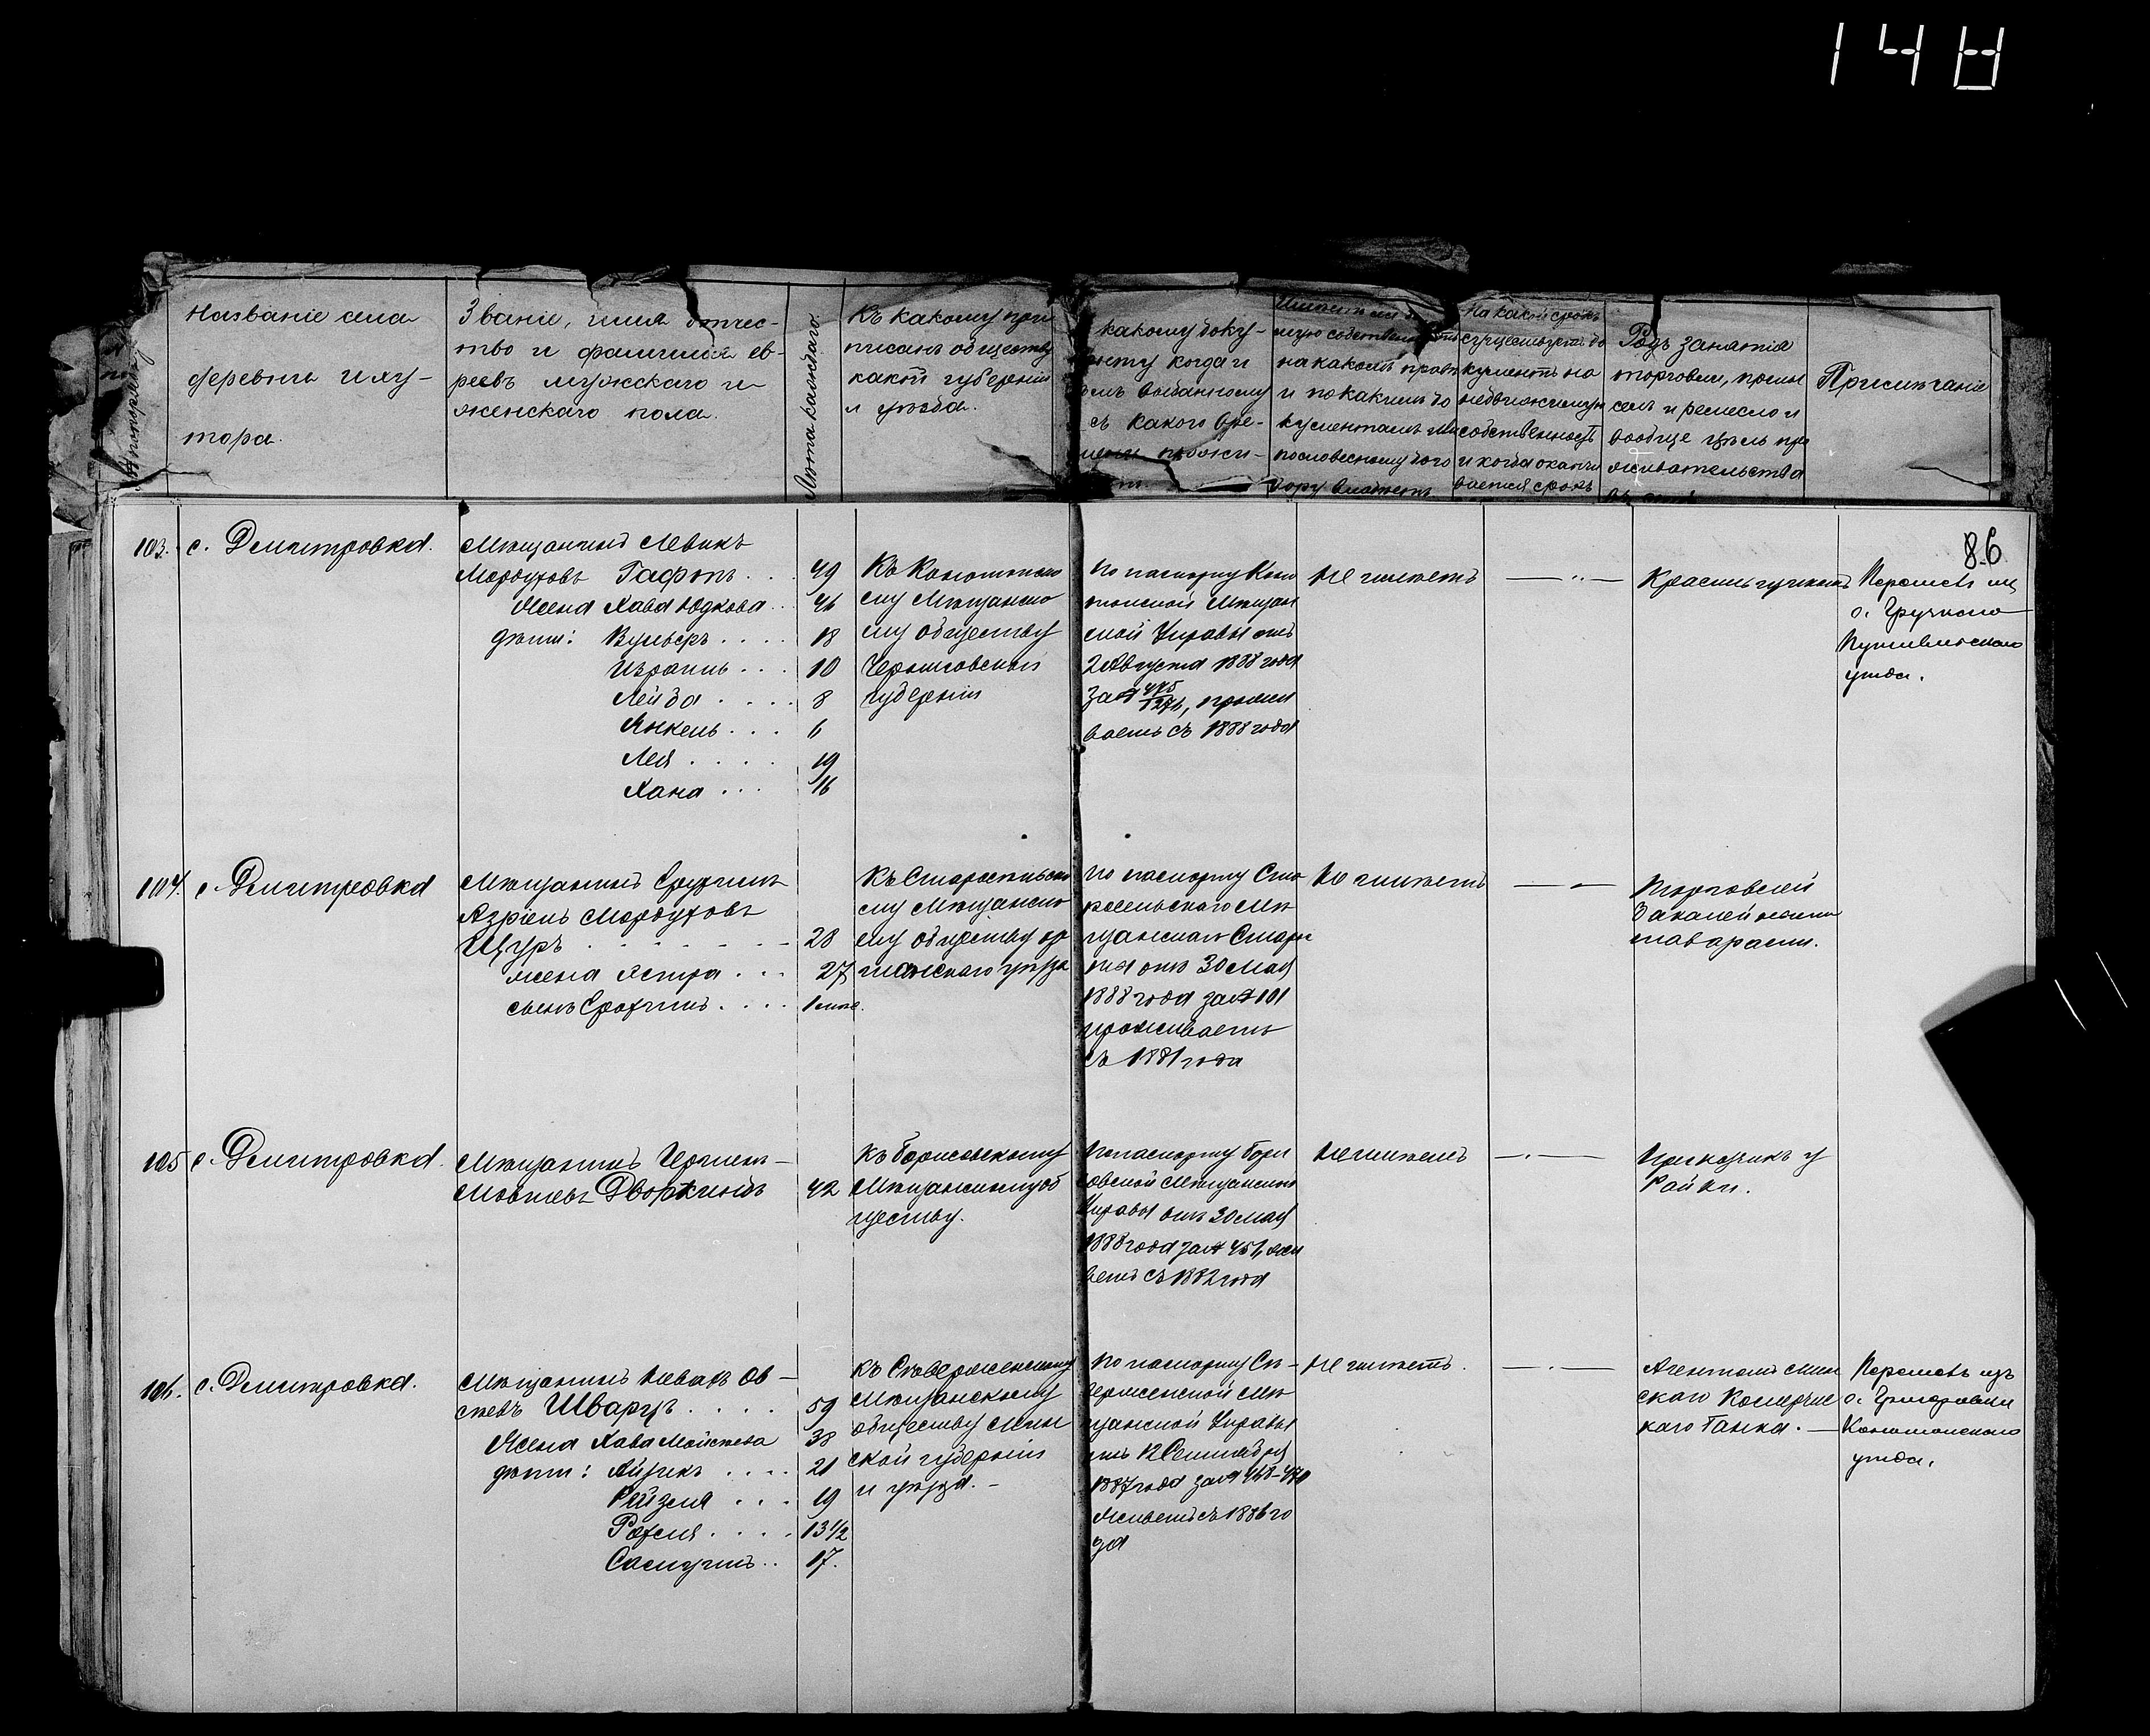 148
Названіе села
деревни и ху-
тора.
Званіе, имя отчес-
тво и фамилія ев-
реевъ мужскаго и
женскаго пола.
Лѣта каждаго
Къ какому при
писанъ обществу
какой губерніи
и уѣзда.
какому доку-
менту когда и
кѣмъ выданному
съ какого вре-
мени прожи-
ваетъ
на какомъ правѣ
и по какимъ до
кументамъ или
пословесному дого
вору владѣетъ
На какой срокъ
существуетъ до
кументъ на
недвижимую
собственность
и когда оканчи
вается срокъ
Родъ занятія
торговли, промы
селъ и ремесло и
вообще цѣль про
живательства
Примѣчаніе
86
103. с. Дмитровка.
Мѣщанинъ Левикъ
Мордуховъ Гафтъ . . 49
Жена Хава Юдкова . . 46
дѣти: Вульфъ . . . . 18
Израиль . . . 10
Лейба . . . . 8
Янкель . . . 6
Лея . . . . 19
Хана . . . 16
Къ Конотопско
му Мѣщанско
му обществу
Черниговской
губерніи
По паспорту Коно
топской Мѣщан
ской Управы отъ
2 Августа 1888 года
за № 475/1276, прожи
ваетъ съ 1888 года
Не имѣетъ
— " —
Красильщикъ
Перешелъ из
с. Грузского
Путивльскаго
уѣзда.
104. с. Дмитровка
Мѣщанинъ Сружимъ
Азріель Мордуховъ
Щуръ . . . . . . 28
жена Эстра . . . 27
сынъ Срафимъ . . . . 1 мѣс.
Къ Старосельско
му Мѣщанско
му обществу ор
шанскаго уѣзда
По паспорту Ста
росельскаго Мѣ
щанскаго Старос
ты отъ 30 Мая
1888 года за № 101
проживаетъ
съ 1881 года
Не имѣетъ
— " —
Торговлей
Бакалейными
таварами.
105 с. Дмитровка.
Мѣщанинъ Герценъ
Мовшевъ Дворкинъ 42
Къ Борисовскому
Мѣщанскому об
ществу.
По паспорту Бори
совской Мѣщанской
Управы отъ 30 Мая
1888 года за № 451, жи
ветъ съ 1882 года
Не имѣетъ
— " —
Прикащикъ у
Райки.
106. с. Дмитровка.
Мѣщанинъ Невахъ Ов-
сѣевъ Шварцъ . . . . 59
Жена Хава Мойсѣева 38
дѣти: Айзикъ . . . . 21
Рейзля . . . 19
Рохля . . . . 13 1/2
Самуилъ . . 17.
Къ Сѣверженскому
Мѣщанскому
обществу Мин
ской губерніи
и уѣзда. -
По паспорту Сѣ-
верженской Мѣ
щанской Управы
отъ 12 Сентября
1887 года за № 468-470
Живетъ съ 1886 го
да
Не имѣетъ.
— " —
Агентомъ Мин
скаго Комерчес
каго Банка. —
Перешелъ изъ
с. Григоровки
Конотопскаго
уѣзда.